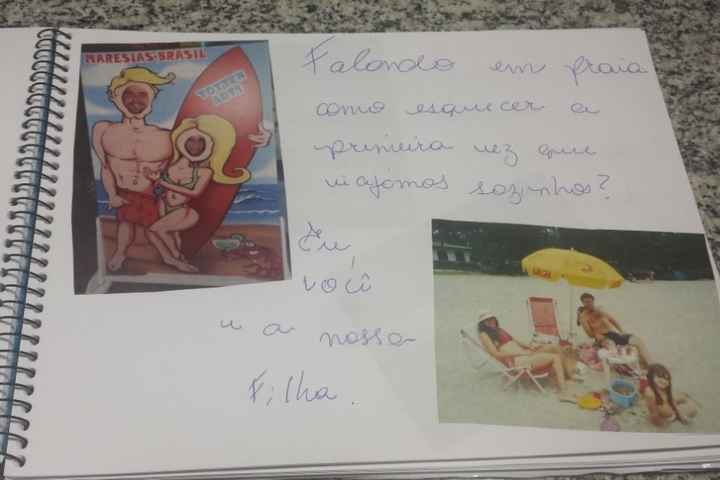 MARESIAS-BRASIL
Falando em praia
como esquecer a
primeira vez que
viajamos sozinhos?
Eu,
você
e a nossa
Filha.